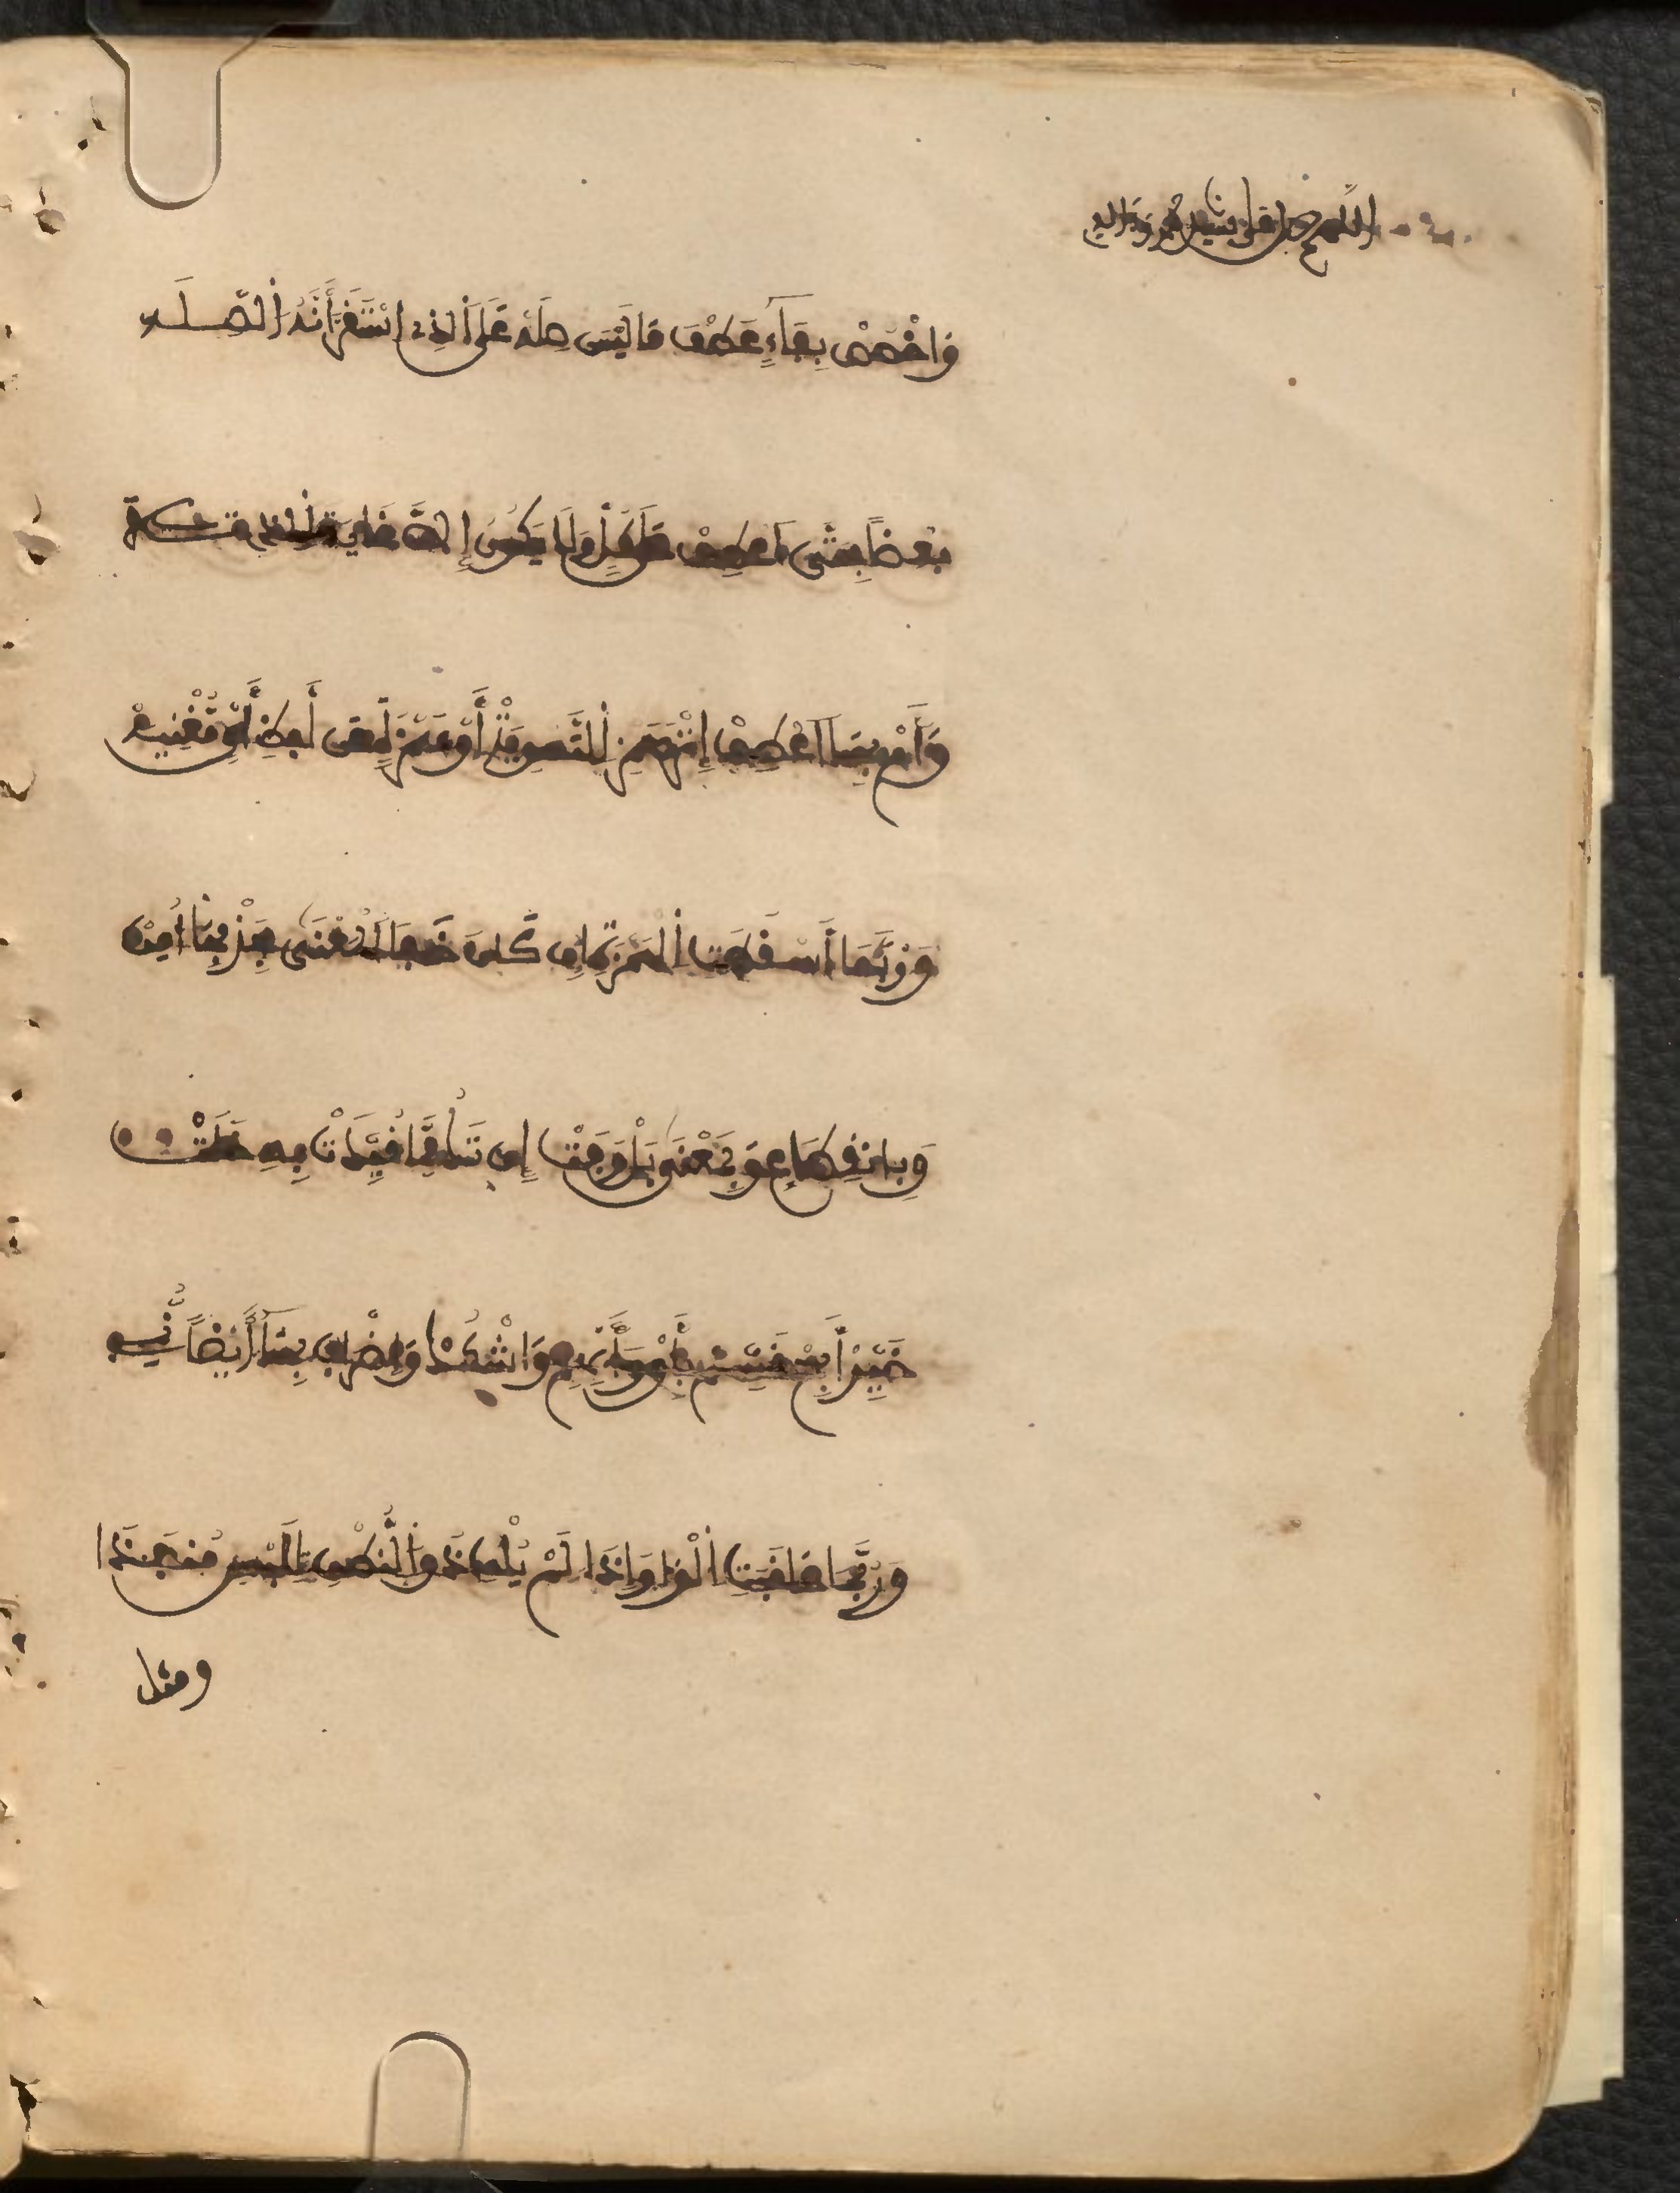 اللهم صل على سيدنا محمد وءاله
وَاخْصُصْ بِفَآءٍ عَطْفَ مَا لَيْسَ صِلَهْ عَلَى اَلذِے اِسْتَقَرَّ أَنَّهُ اُلصِّلَه
بَعْضاً بِحَتَّى اَعْطِفْ عَلَى كُلٍّ وَلَا يَكُونُ إِلَّا غَايَةَ اَلذِے تَلَا
وَأَمْ بِهَا اَعْطِفْ إِثْرَ هَمْزِ اِلتَّسْوِيَهْ أَوْ هَمْزَةٍ عَن لَّفْظِ أَيٍّ مُغْنِيَهْ
وَرُبَّمَا أُسْقِطَتِ اِلْهَمْزَةُ إِن كَانَ خَفَا اَلْمَعْنَى بِحَذْفِهَا أُمِنْ
وَبِانْقِطَاعٍ وَبِمَعْنَى بَلْ وَفَتْ إِن تَكُ مِمَّا قُيِّدَتْ بِهِ خَلَتْ
خَيِّرْ أَبِحْ قَسِّم بِأَوْ وَأَبْهِمِ وَاشْكُكْ وَإِضْرَابٌ بِهَا أَيْضاً نُّمِے
وَرُبَّمَا عَاقَبَتِ اِلْوَاوَ إِذَا لَمْ يُلْفِ ذُو اُلنُّطْقِ لِلَبْسٍ مَنفَذَا
ومثل